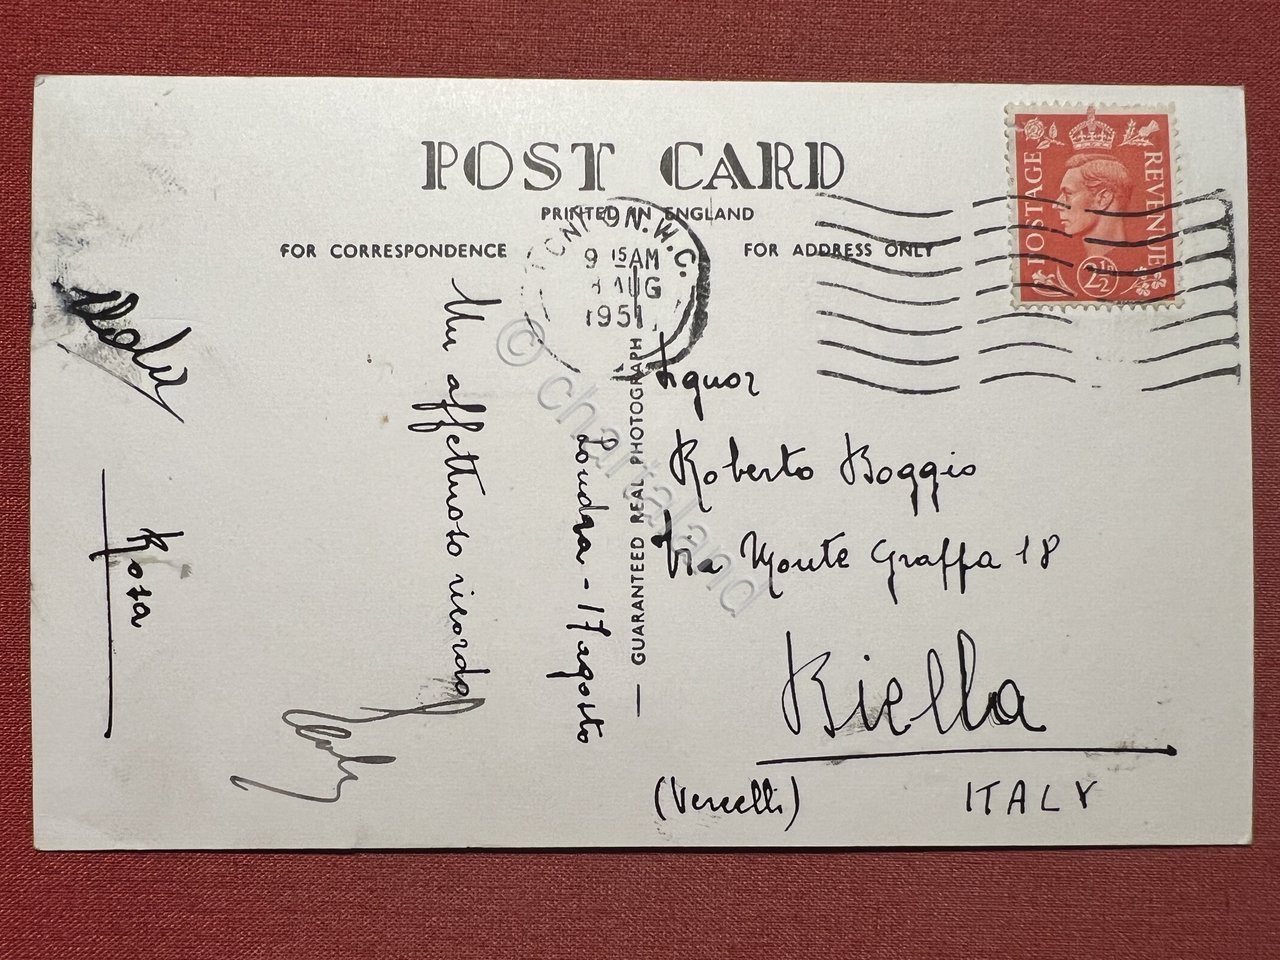 POST CARD
PRINTED IN ENGLAND
FOR CORRESPONDENCE
FOR ADDRESS ONLY
LONDON. W.C.
9 15 AM
AUG
1951
POSTAGE
REVENUE
2½D
GUARANTEED REAL PHOTOGRAPH
Londra - 17 agosto
Un affettuoso ricordo
Rosa
Signor
Roberto Boggio
Via Monte Grappa 18
Biella
(Vercelli)
ITALY
© chartaland